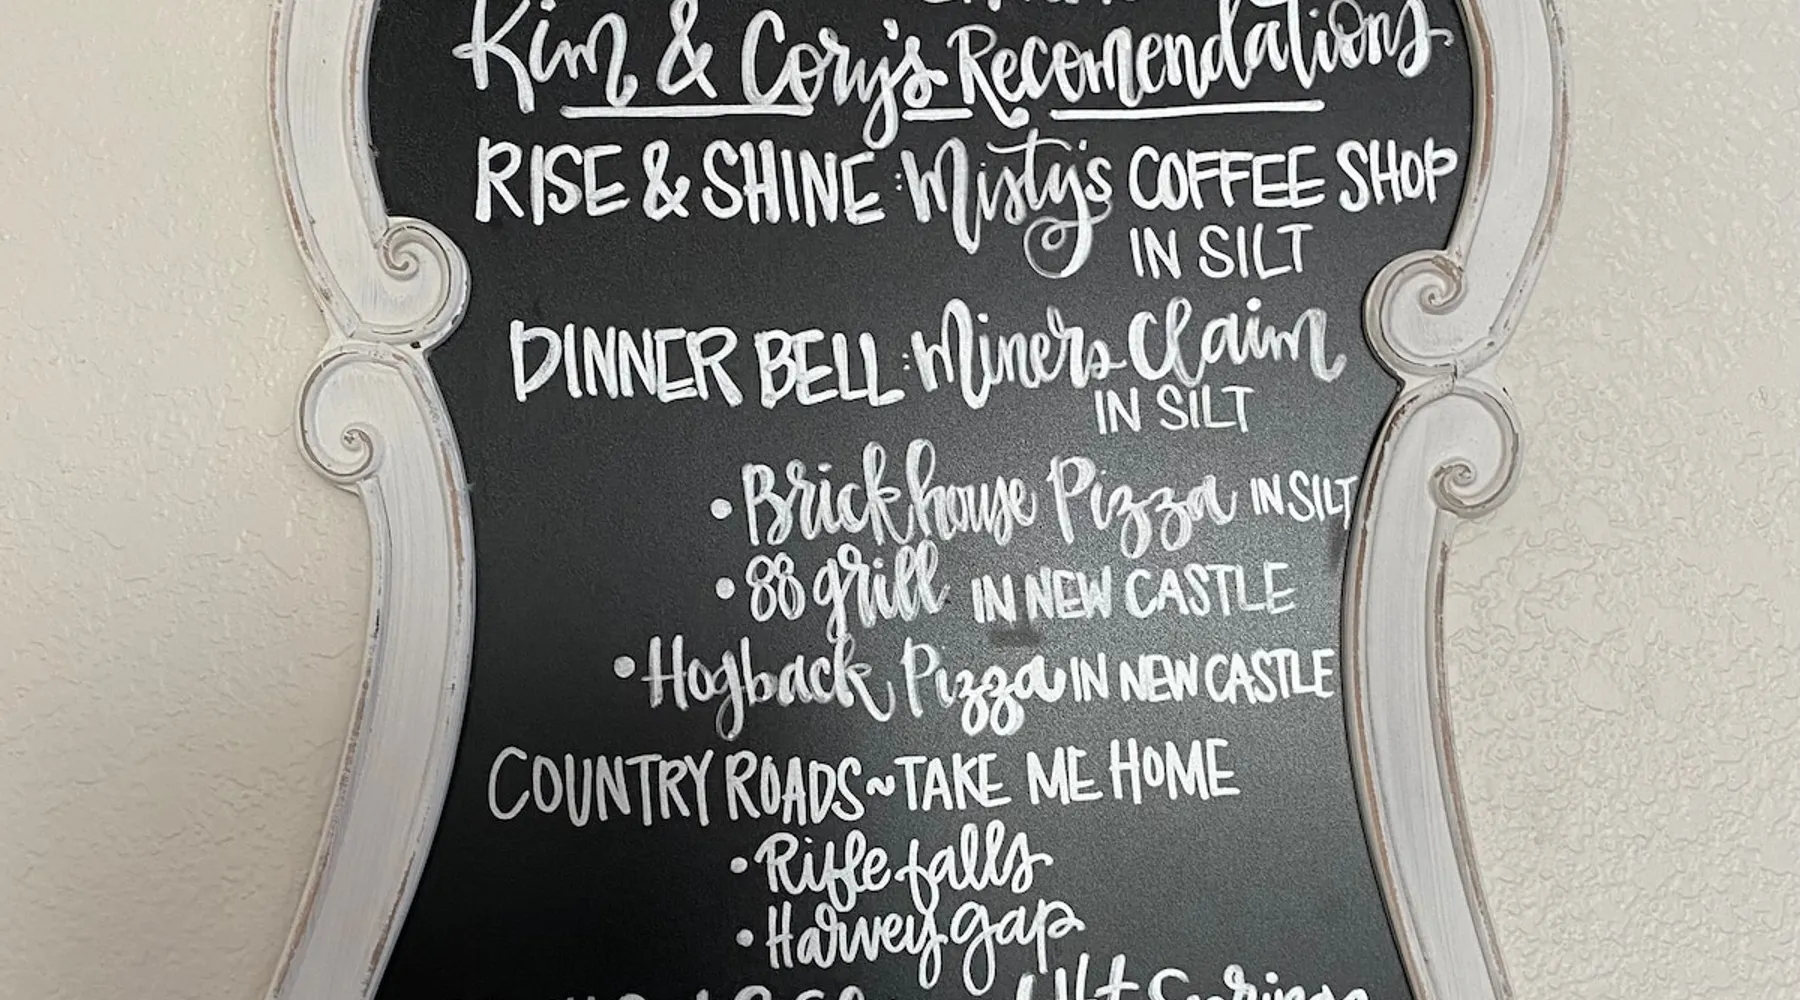 Kim & Cory's Recomendations
RISE & SHINE : Misty's COFFEE SHOP
IN SILT
DINNER BELL : Miners Claim
IN SILT
• Brickhouse Pizza IN SILT
• 88 grill IN NEW CASTLE
• Hogback Pizza IN NEW CASTLE
COUNTRY ROADS ~ TAKE ME HOME
• Rifle falls
• Harvey gap
Hot Springs